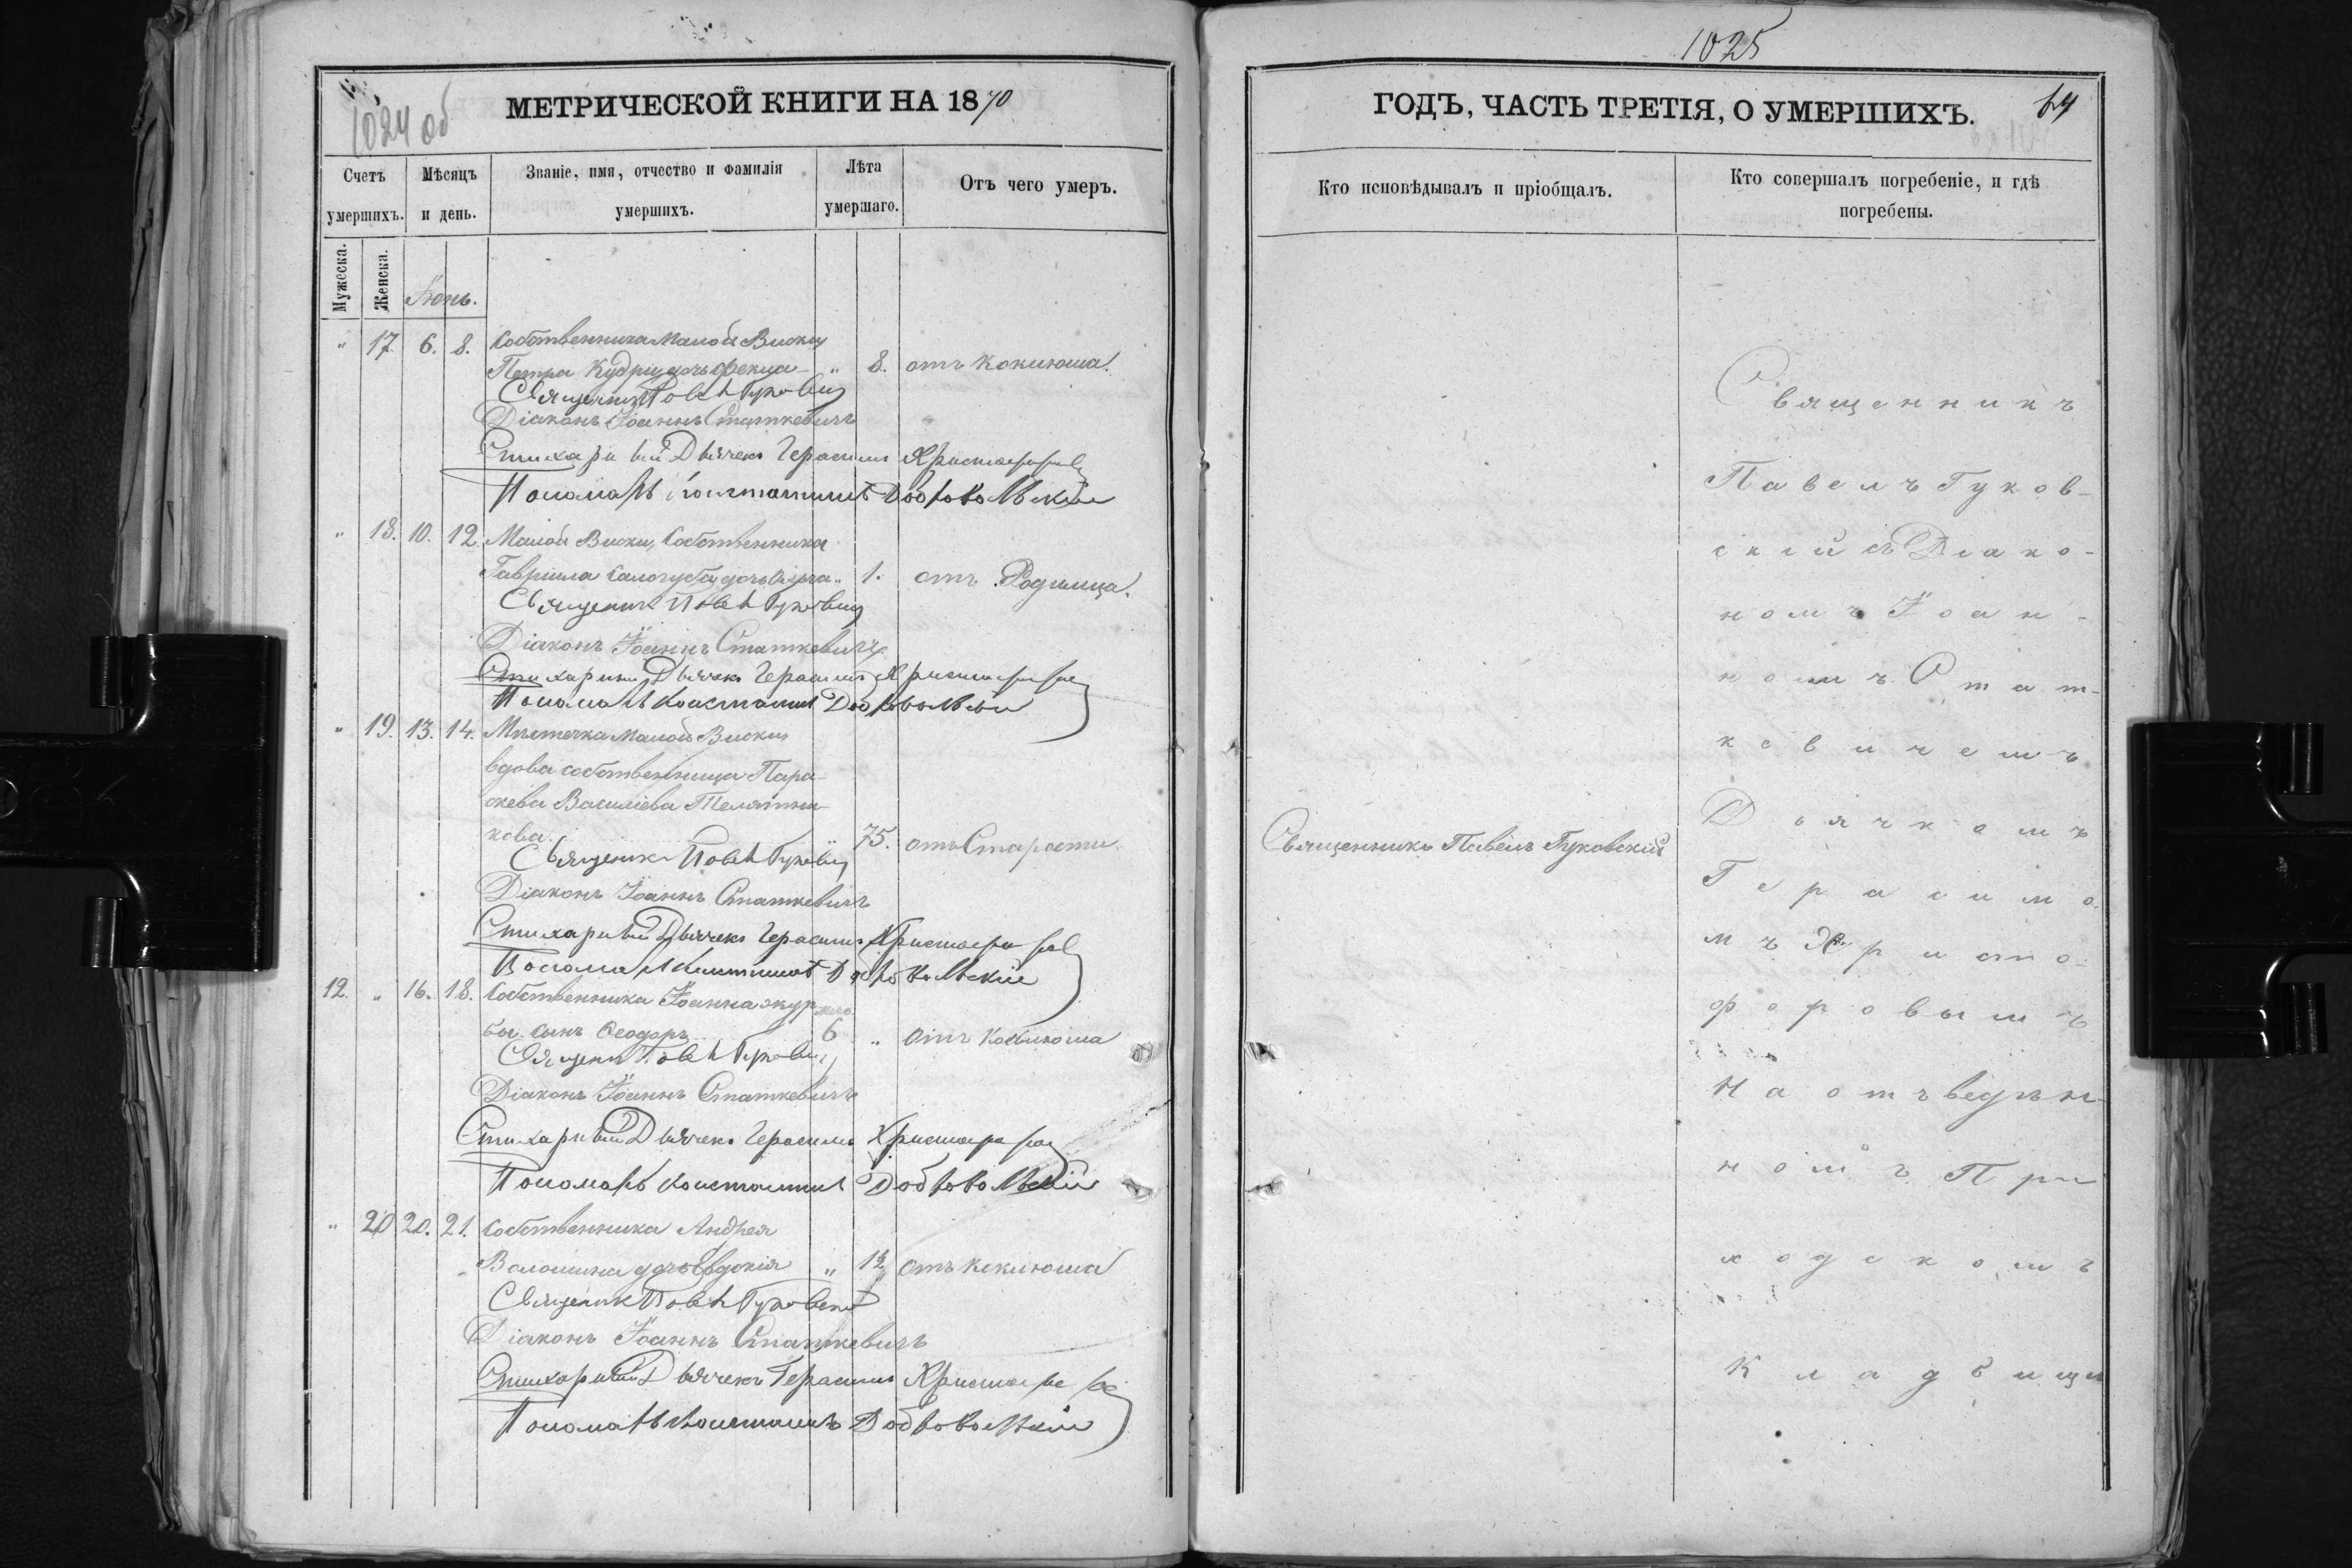 1024 об
МЕТРИЧЕСКОЙ КНИГИ НА 1870
Счетъ умершихъ.
Мѣсяцъ и день.
Званіе, имя, отчество и фамилія умершихъ.
Лѣта умершаго.
Отъ чего умеръ.
Мужеска.
Женска.
Іюнь.
" 17. 6. 8. Собственника Малой Виски
Петра Кудри дочь Фекла " 8. отъ Коклюша.
Священникъ Павелъ Гуковскій
Діаконъ Іоаннъ Статкевичъ
Стихарный Дьячекъ Герасимъ Христофоровъ
Пономарь Константинъ Добровольскій
" 18. 10. 12. Малой Виски, Собственника
Гавріила Салогуба дочь 1. отъ Родимца.
Священникъ Павелъ Гуковскій
Діаконъ Іоаннъ Статкевичъ
Стихарный Дьячекъ Герасимъ Христофоровъ
Пономарь Константинъ Добровольскій
" 19. 13. 14. Мѣстечка Малой Виски
вдова собственница Пара-
скева Василіева Телятни-
кова. 75. отъ Старости.
Священникъ Павелъ Гуковскій
Діаконъ Іоаннъ Статкевичъ
Стихарный Дьячекъ Герасимъ Христофоровъ
Пономарь Константинъ Добровольскій
12. " 16. 18. Собственника Іоанна
сынъ Ѳеодоръ 6 " отъ Коклюша
Священникъ Павелъ Гуковскій
Діаконъ Іоаннъ Статкевичъ
Стихарный Дьячекъ Герасимъ Христофоровъ
Пономарь Константинъ Добровольскій
" 20. 20. 21. Собственника Андрея
Волошина дочь Евдокія " 12 отъ Коклюша
Священникъ Павелъ Гуковскій
Діаконъ Іоаннъ Статкевичъ
Стихарный Дьячекъ Герасимъ Христофоровъ
Пономарь Константинъ Добровольскій
1025
ГОДЪ, ЧАСТЬ ТРЕТІЯ, О УМЕРШИХЪ.
Кто исповѣдывалъ и пріобщалъ.
Кто совершалъ погребеніе, и гдѣ погребены.
Священникъ Павелъ Гуковскій
Священникъ
Павелъ Гуков-
скій съ Діако-
номъ Іоан-
номъ Стат-
кевичемъ
Дьячкомъ
Герасимо-
мъ Христо-
форовымъ
На отъведѣн-
номъ При
ходскомъ
Кладбищи